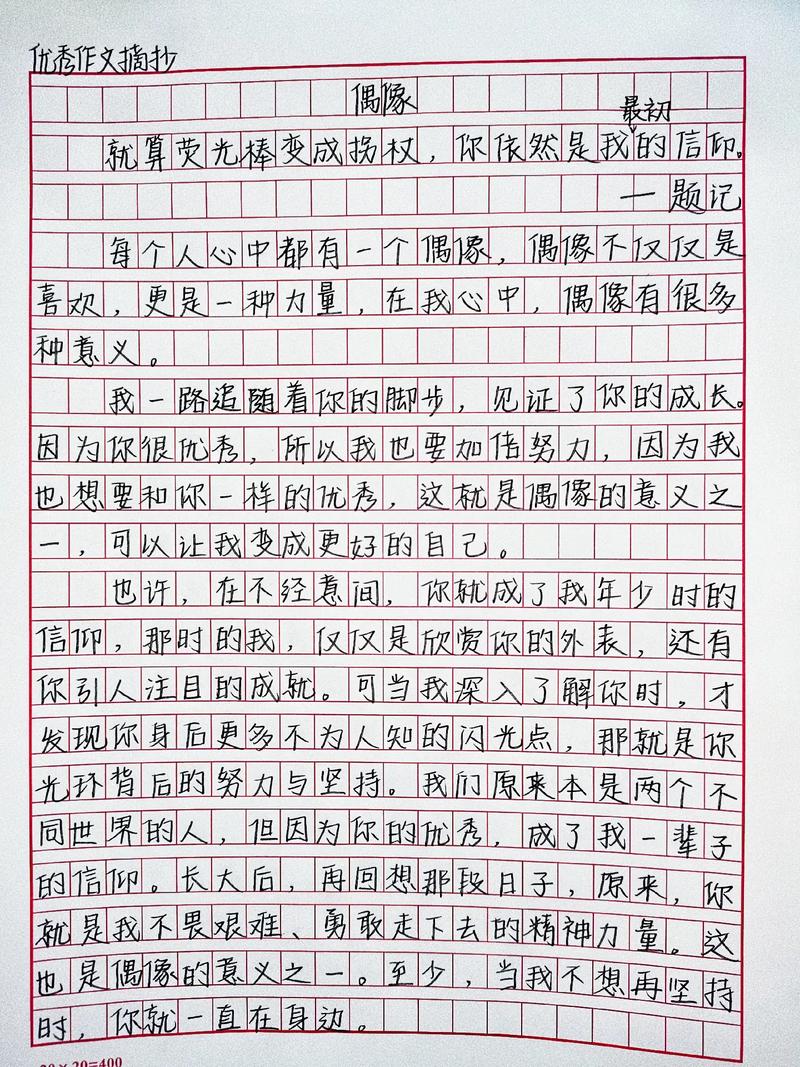 优秀作文摘抄
偶像
最初
就算荧光棒变成拐杖，你依然是我的信仰。
一题记
每个人心中都有一个偶像，偶像不仅仅是
喜欢，更是一种力量，在我心中，偶像有很多
种意义。
我一路追随着你的脚步，见证了你的成长。
因为你很优秀，所以我也要加倍努力，因为我
也想要和你一样的优秀，这就是偶像的意义之
一，可以让我变成更好的自己。
也许，在不经意间，你就成了我年少时的
信仰，那时的我，仅仅是欣赏你的外表，还有
你引人注目的成就。可当我深入了解你时，才
发现你身后更多不为人知的闪光点，那就是你
光环背后的努力与坚持。我们原来本是两个不
同世界的人，但因为你的优秀，成了我一辈子
的信仰。长大后，再回想那段日子，原来，你
就是我不畏艰难、勇敢走下去的精神力量。这
也是偶像的意义之一。至少，当我不想再坚持
时，你就一直在身边。
20×20=400